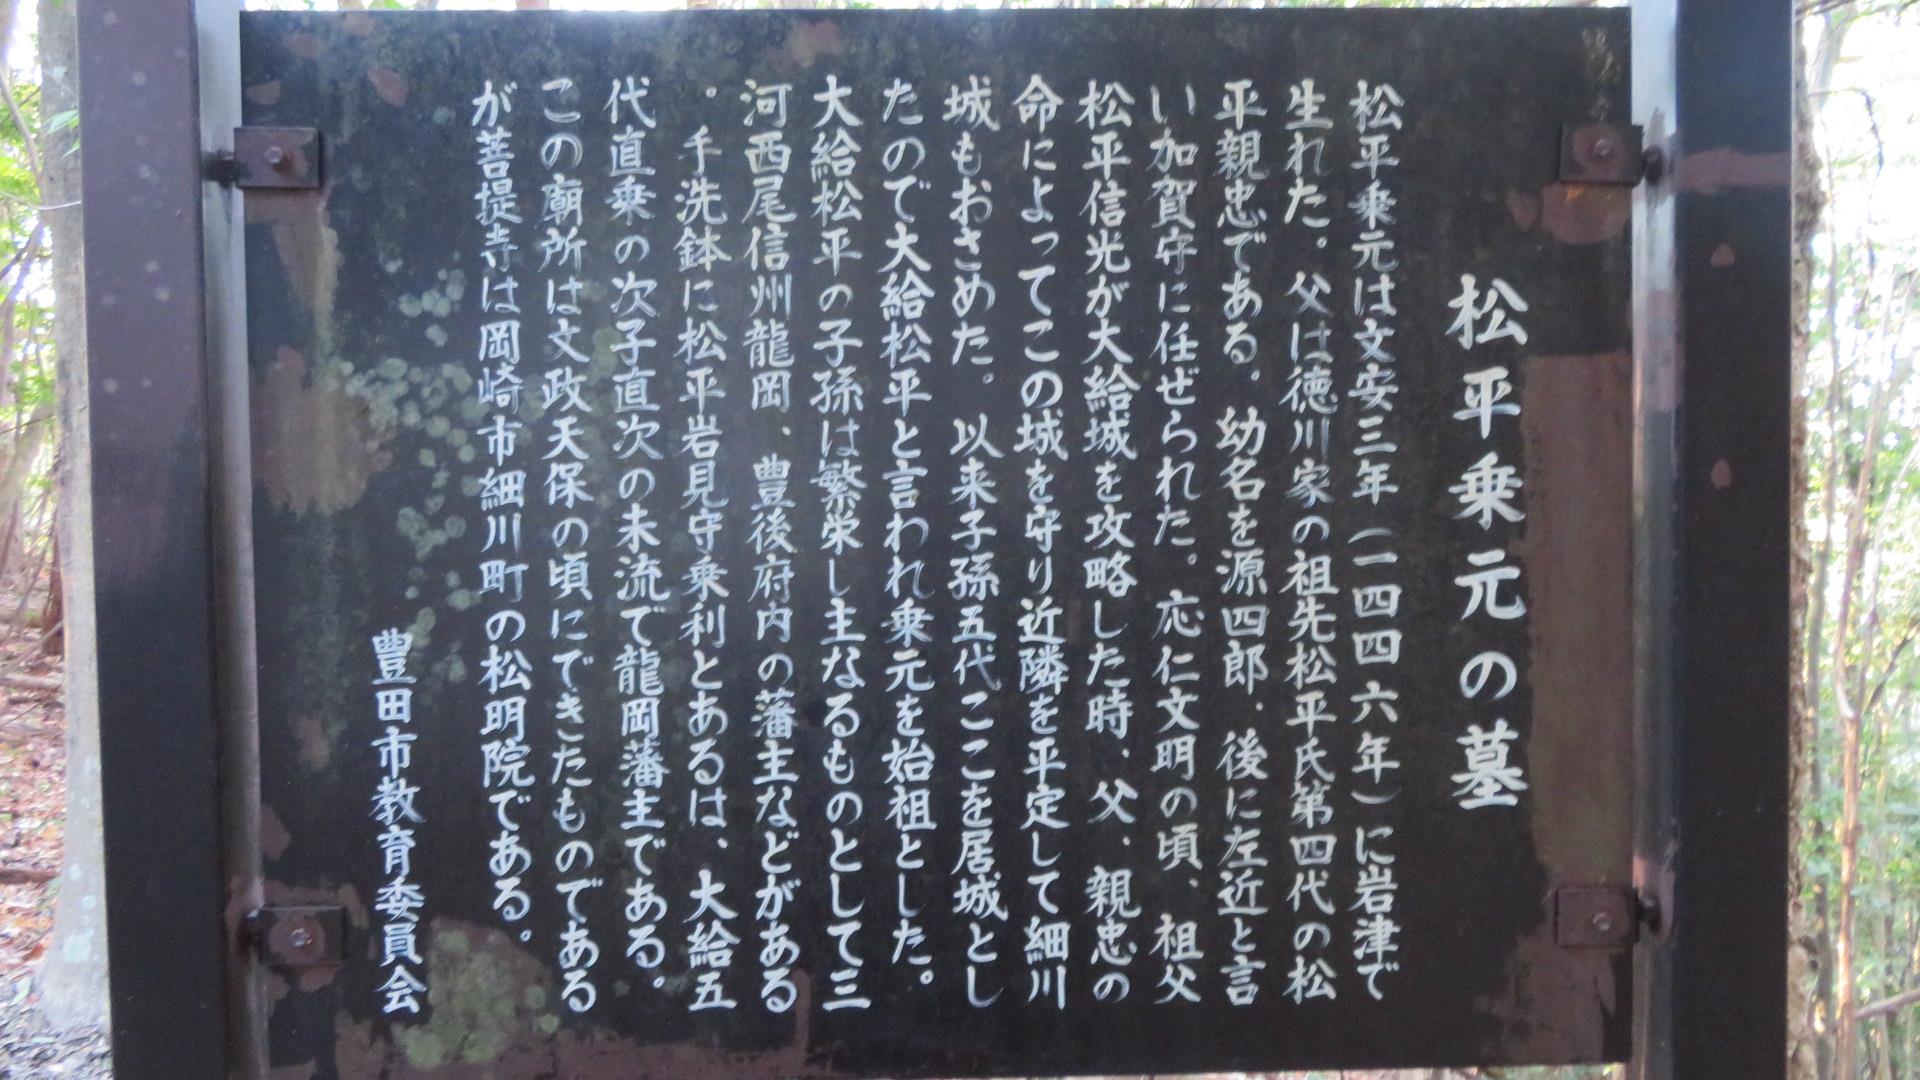 松平乗元の墓
松平乗元は文安三年（一四四六年）に岩津で
生れた。父は徳川家の祖先松平氏第四代の松
平親忠である。幼名を源四郎、後に左近と言
い加賀守に任ぜられた。応仁文明の頃、祖父
松平信光が大給城を攻略した時、父、親忠の
命によってこの城を守り近隣を平定して細川
城もおさめた。以来子孫五代ここを居城とし
たので大給松平と言われ乗元を始祖とした。
大給松平の子孫は繁栄し主なるものとして三
河西尾信州龍岡、豊後府内の藩主などがある
。手洗鉢に松平岩見守乗利とあるは、大給五
代直乗の次子直次の末流で龍岡藩主である。
この廟所は文政天保の頃にできたものである
が菩提寺は岡崎市細川町の松明院である。
豊田市教育委員会